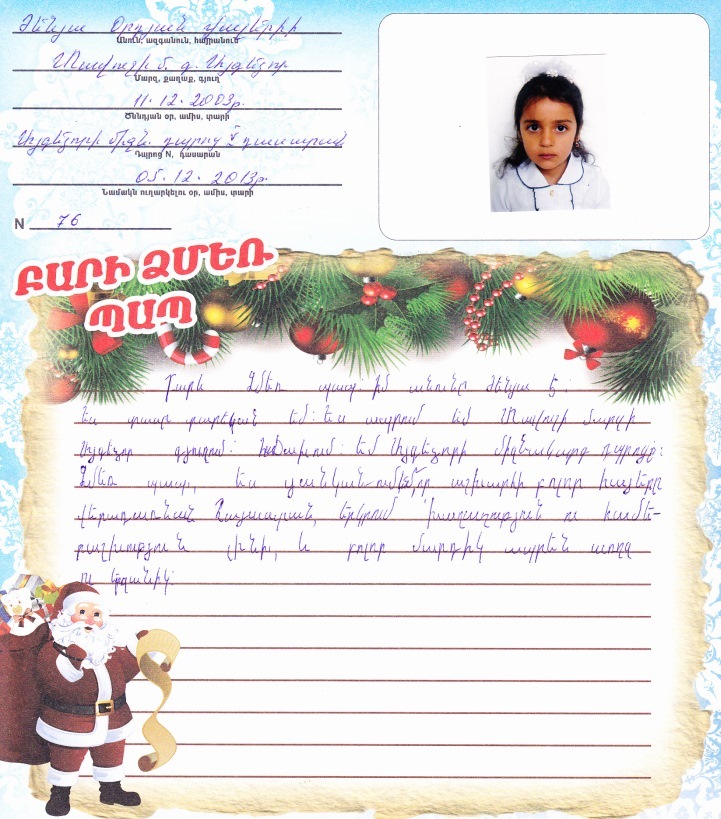 Ժենյա Օրդյան Վալերիի
Անուն, ազգանուն, հայրանուն
Տավուշի մ. գ. Այգեձոր
Մարզ, քաղաք, գյուղ
11.12.2003թ.
Ծննդյան օր, ամիս, տարի
Այգեձորի միջն. դպրոց 5 դասարան
Դպրոց N, դասարան
05.12.2013թ.
Նամակն ուղարկելու օր, ամիս, տարի
N 76
ԲԱՐԻ ՁՄԵՌ
ՊԱՊ
Բարև Ձմեռ պապ. Իմ անունը Ժենյա է:
Ես տասը տարեկան եմ: Ես ապրում եմ Տավուշի մարզի
Այգեձոր գյուղում: Հաճախում եմ Այգեձորի միջնակարգ դպրոց:
Ձմեռ պապ, ես ցանկանում եմ, որ աշխարհի բոլոր հայերը
վերադառնան Հայաստան, երկրում խաղաղություն ու համե-
րաշխություն լինի, և բոլոր մարդիկ ապրեն առողջ
ու երջանիկ: